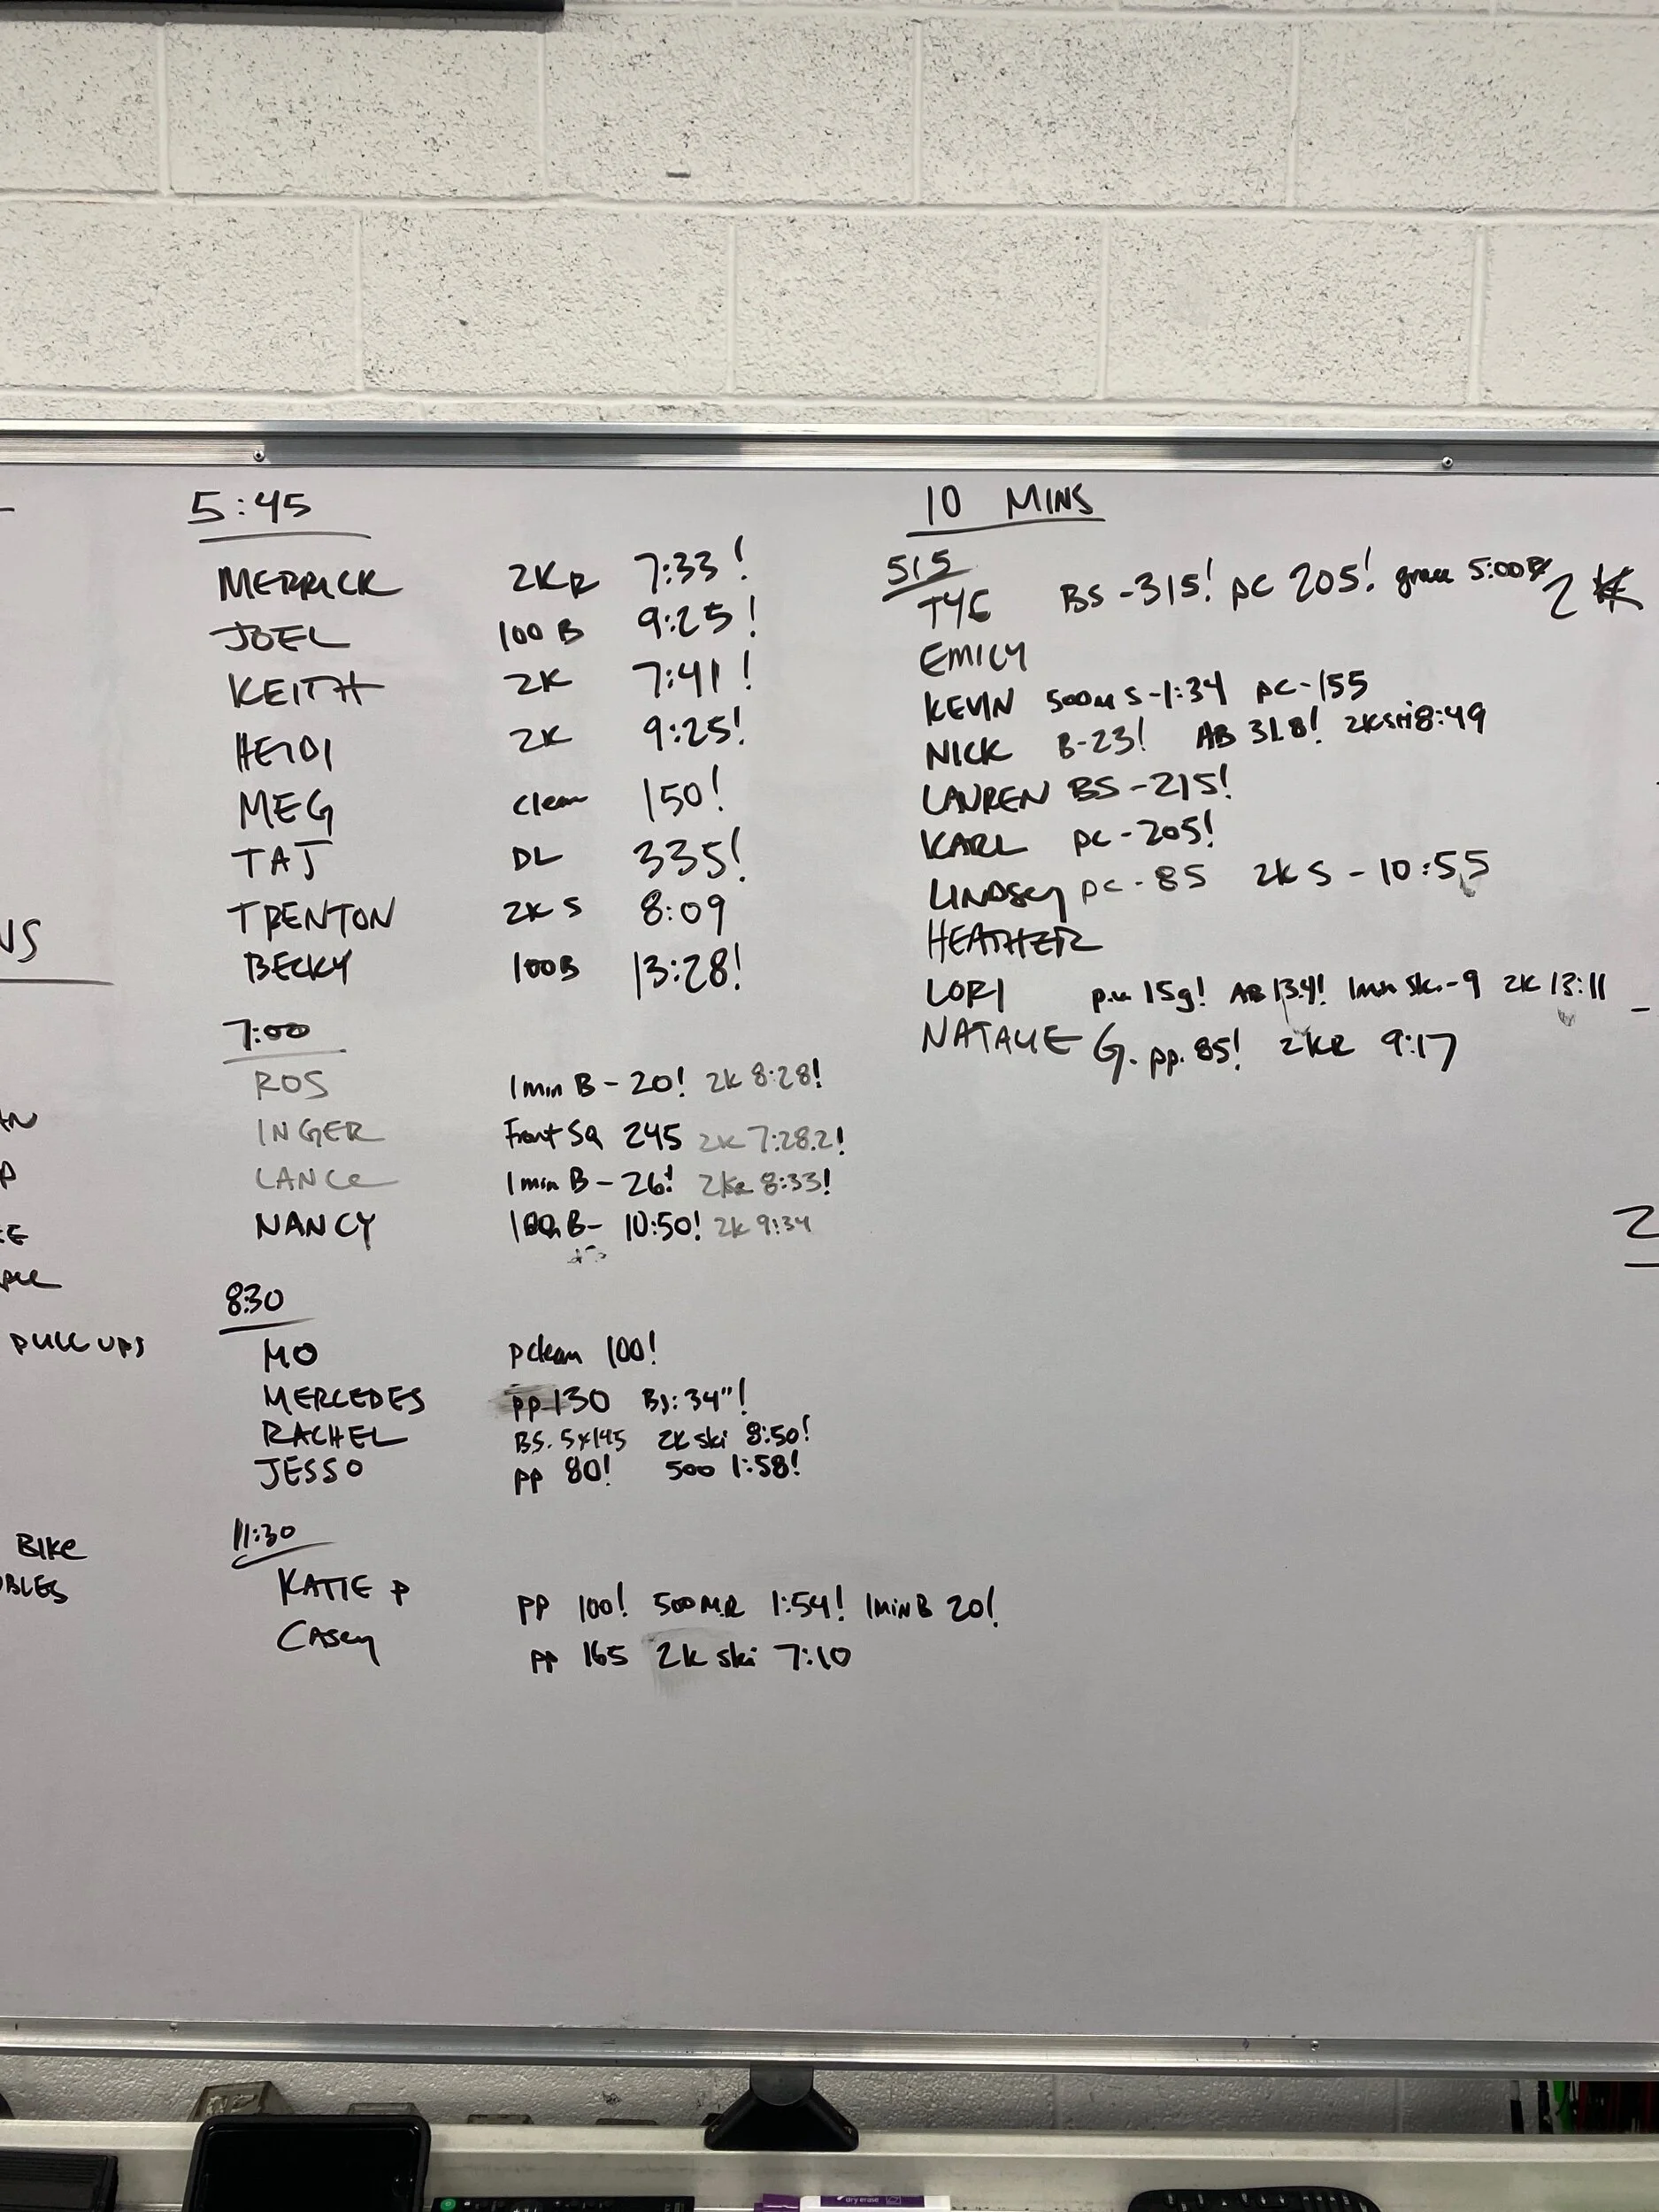 5:45
MERRICK 2KR 7:33!
JOEL 100 B 9:25!
KEITH 2K 7:41!
HEIDI 2K 9:25!
MEG clean 150!
TAJ DL 335!
TRENTON 2K S 8:09
BECKY 100B 13:28!
7:00
ROS 1 min B - 20! 2K 8:28!
INGER Front SQ 245 2K 7:28.2!
LANCE 1 min B - 26! 2KR 8:33!
NANCY B- 10:50! 2K 9:34
8:30
MO pclean 100!
MERCEDES pp 130 BJ: 34"!
RACHEL BS. 5x145 2K ski 8:50!
JESSO pp 80! 500 1:58!
11:30
KATIE P pp 100! 500MR 1:54! 1minB 20!
CASEY pp 165 2K ski 7:10
10 MINS
515
TYE BS - 315! pc 205! grace 5:00
EMILY
KEVIN 500m S - 1:34 pc - 155
NICK B-23! AB 31.8! 2K ski 8:49
LAUREN BS - 215!
KARL pc - 205!
LINDSEY pc - 85 2K S - 10:55
HEATHER
LORI p.u 15g! AB 13.4! 1min ski - 9 2K 13:11
NATALIE G. pp. 85! 2KR 9:17
PULL UPS
BIKE